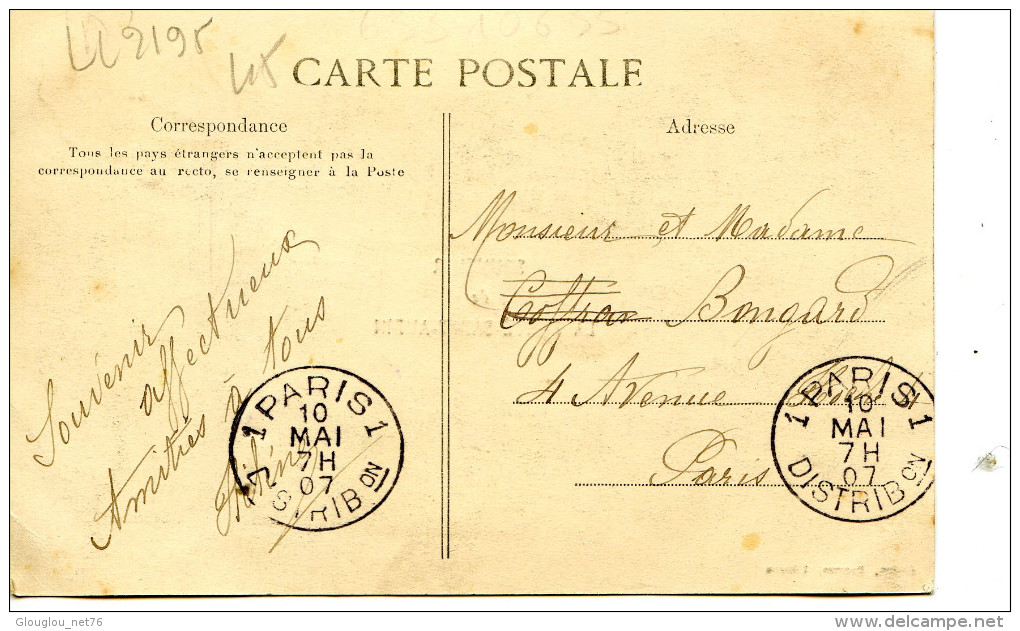 LL 2195
CARTE POSTALE
Correspondance
Tous les pays étrangers n'acceptent pas la
correspondance au recto, se renseigner à la Poste
Adresse
Souvenir
affectueux
Amitiés à tous
Monsieur et Madame
Bongard
4 Avenue
Paris
PARIS 1
10
MAI
7H
07
DISTRIBON
1 PARIS 1
10
MAI
7H
07
DISTRIBON
Glouglou_net76
www.delcampe.net